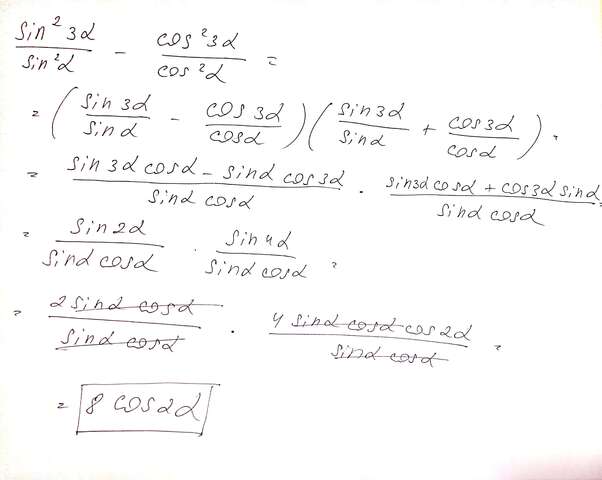 sin² 3α / sin² α − cos² 3α / cos² α =
= ( sin 3α / sin α − cos 3α / cos α ) ( sin 3α / sin α + cos 3α / cos α ) =
= (sin 3α cos α − sin α cos 3α) / (sin α cos α) · (sin 3α cos α + cos 3α sin α) / (sin α cos α) =
= sin 2α / (sin α cos α) · sin 4α / (sin α cos α) =
= 2 sin α cos α / (sin α cos α) · 4 sin α cos α cos 2α / (sin α cos α) =
= 8 cos 2α